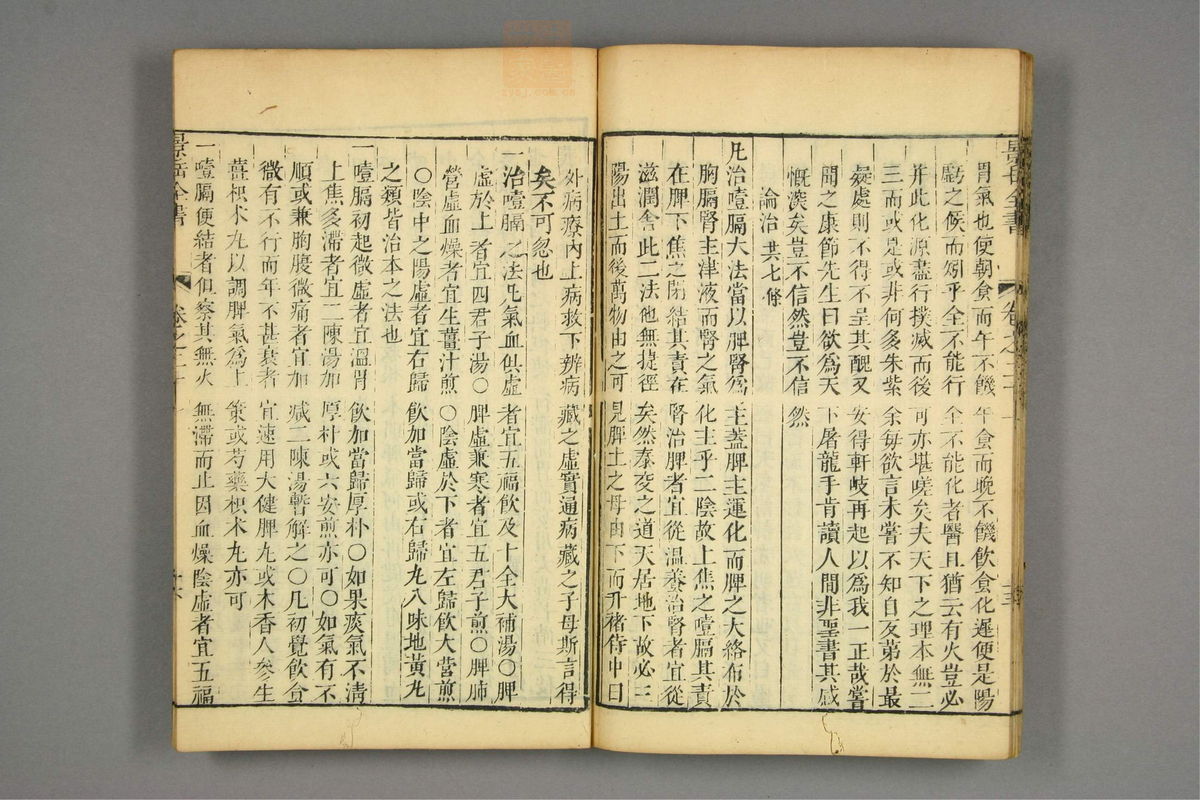 胃氣也使朝食而午不饑午食而晚不饑飲食化遲便是陽
虧之候而矧乎全不能行全不能化者醫且猶云有火豈必
并此化源盡行撲滅而後可亦堪嗟矣夫天下之理本無二
三而或是或非何多朱紫余每欲言未嘗不知自反第於最
疑處則不得不呈其醜又安得軒岐再起以為我一正哉嘗
聞之康節先生曰欲為天下屠龍手肯讀人間非聖書其感
慨深矣豈不信然豈不信然
論治 共七條
凡治噎膈大法當以脾腎為主蓋脾主運化而脾之大絡布於
胸膈腎主津液而腎之氣化主乎二陰故上焦之噎膈其責
在脾下焦之閉結其責在腎治脾者宜從溫養治腎者宜從
滋潤舍此二法他無捷徑矣然泰交之道天居地下故必三
陽出土而後萬物由之可見脾土之母由下而升褚侍中曰
外病療內上病救下辨病藏之虛實通病藏之子母斯言得
矣不可忽也
一治噎膈之法凡氣血俱虛者宜五福飲及十全大補湯○脾
虛於上者宜四君子湯○脾虛兼寒者宜五君子煎○脾肺
營虛血燥者宜生薑汁煎○陰虛於下者宜左歸飲大營煎
○陰中之陽虛者宜右歸飲加當歸或右歸丸八味地黃丸
之類皆治本之法也
一噎膈初起微虛者宜溫胃飲加當歸厚朴○如果痰氣不清
上焦多滯者宜二陳湯加厚朴或六安煎亦可○如氣有不
順或兼胸腹微痛者宜加減二陳湯暫解之○凡初覺飲食
微有不行而年不甚衰者宜速用大健脾丸或木香人參生
薑枳朮丸以調脾氣為上策或芍藥枳朮丸亦可
一噎膈便結者但察其無火無滯而止因血燥陰虛者宜五福
景岳全書
卷之二十